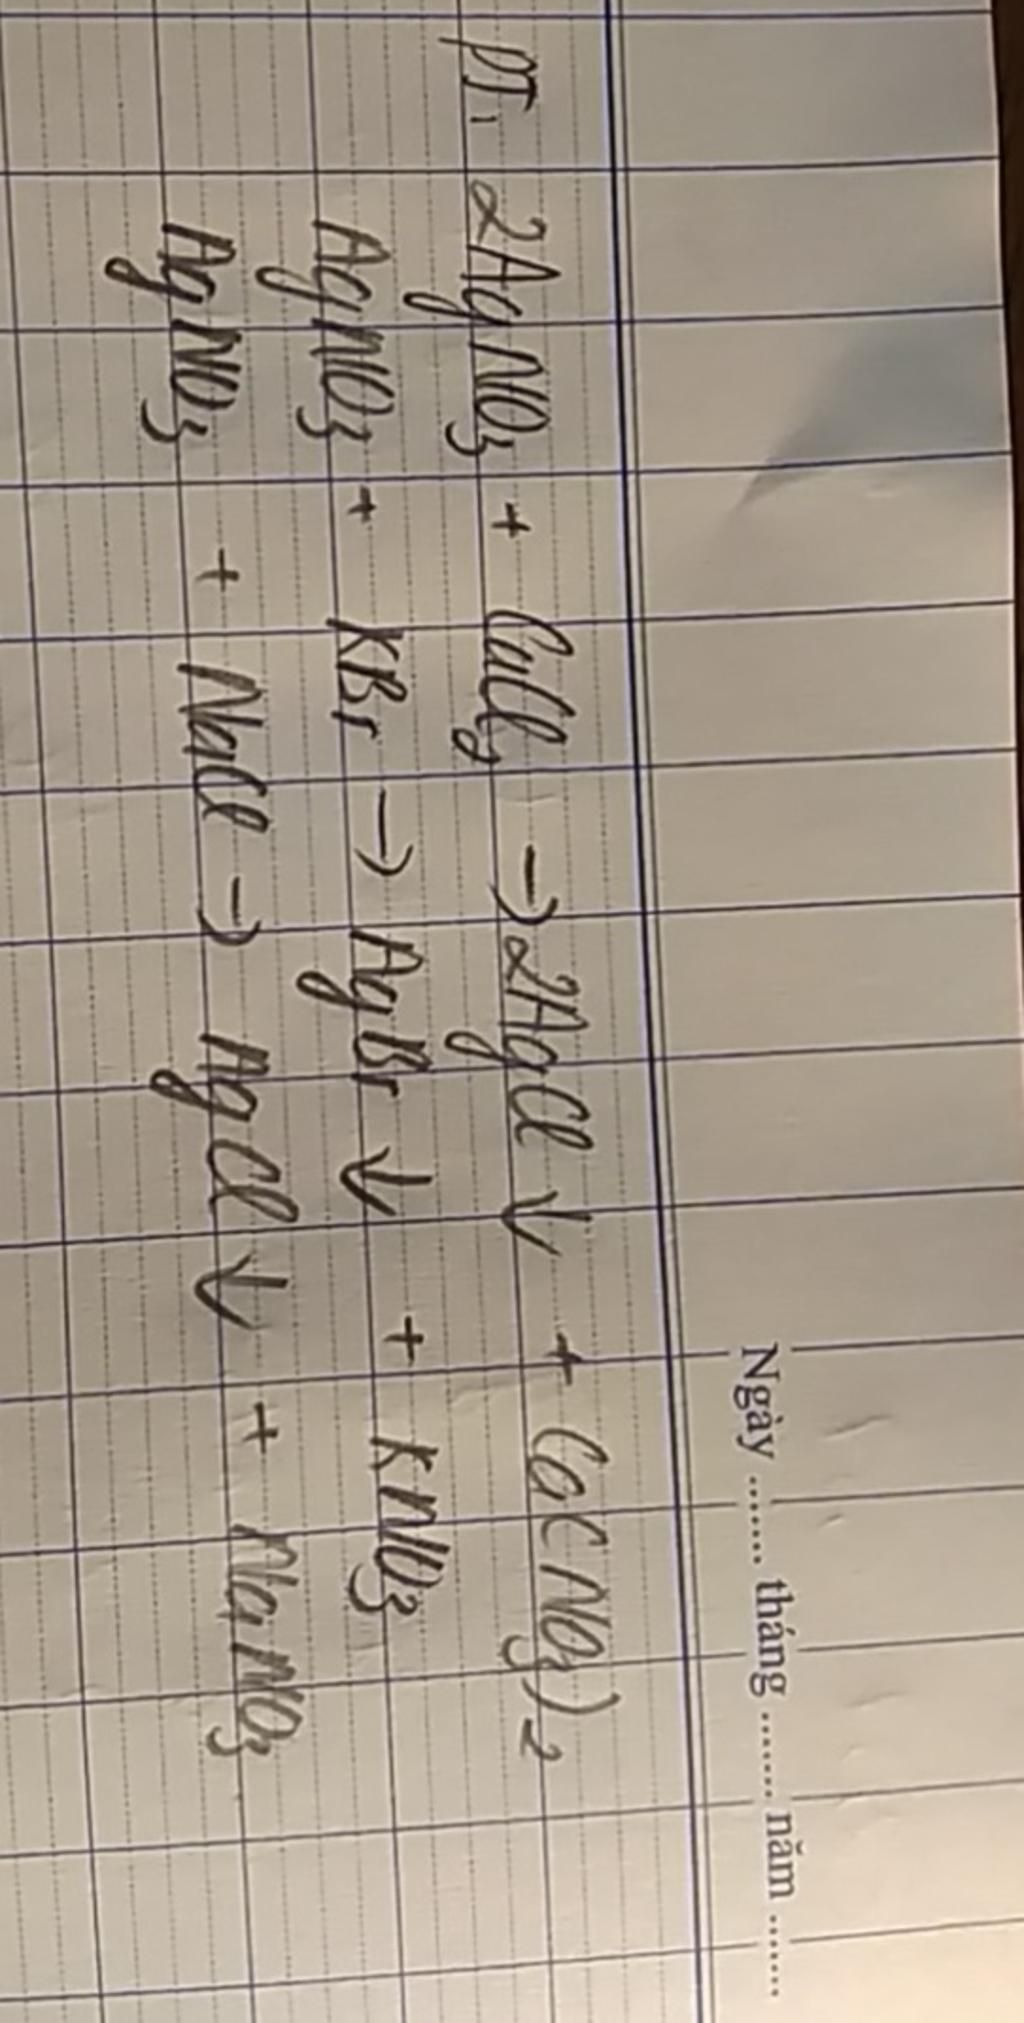 Ngày ....... tháng ....... năm .......
PT: 2AgNO₃ + CaCl₂ → 2AgCl ↓ + Ca(NO₃)₂
AgNO₃ + KBr → AgBr ↓ + KNO₃
AgNO₃ + NaCl → AgCl ↓ + NaNO₃